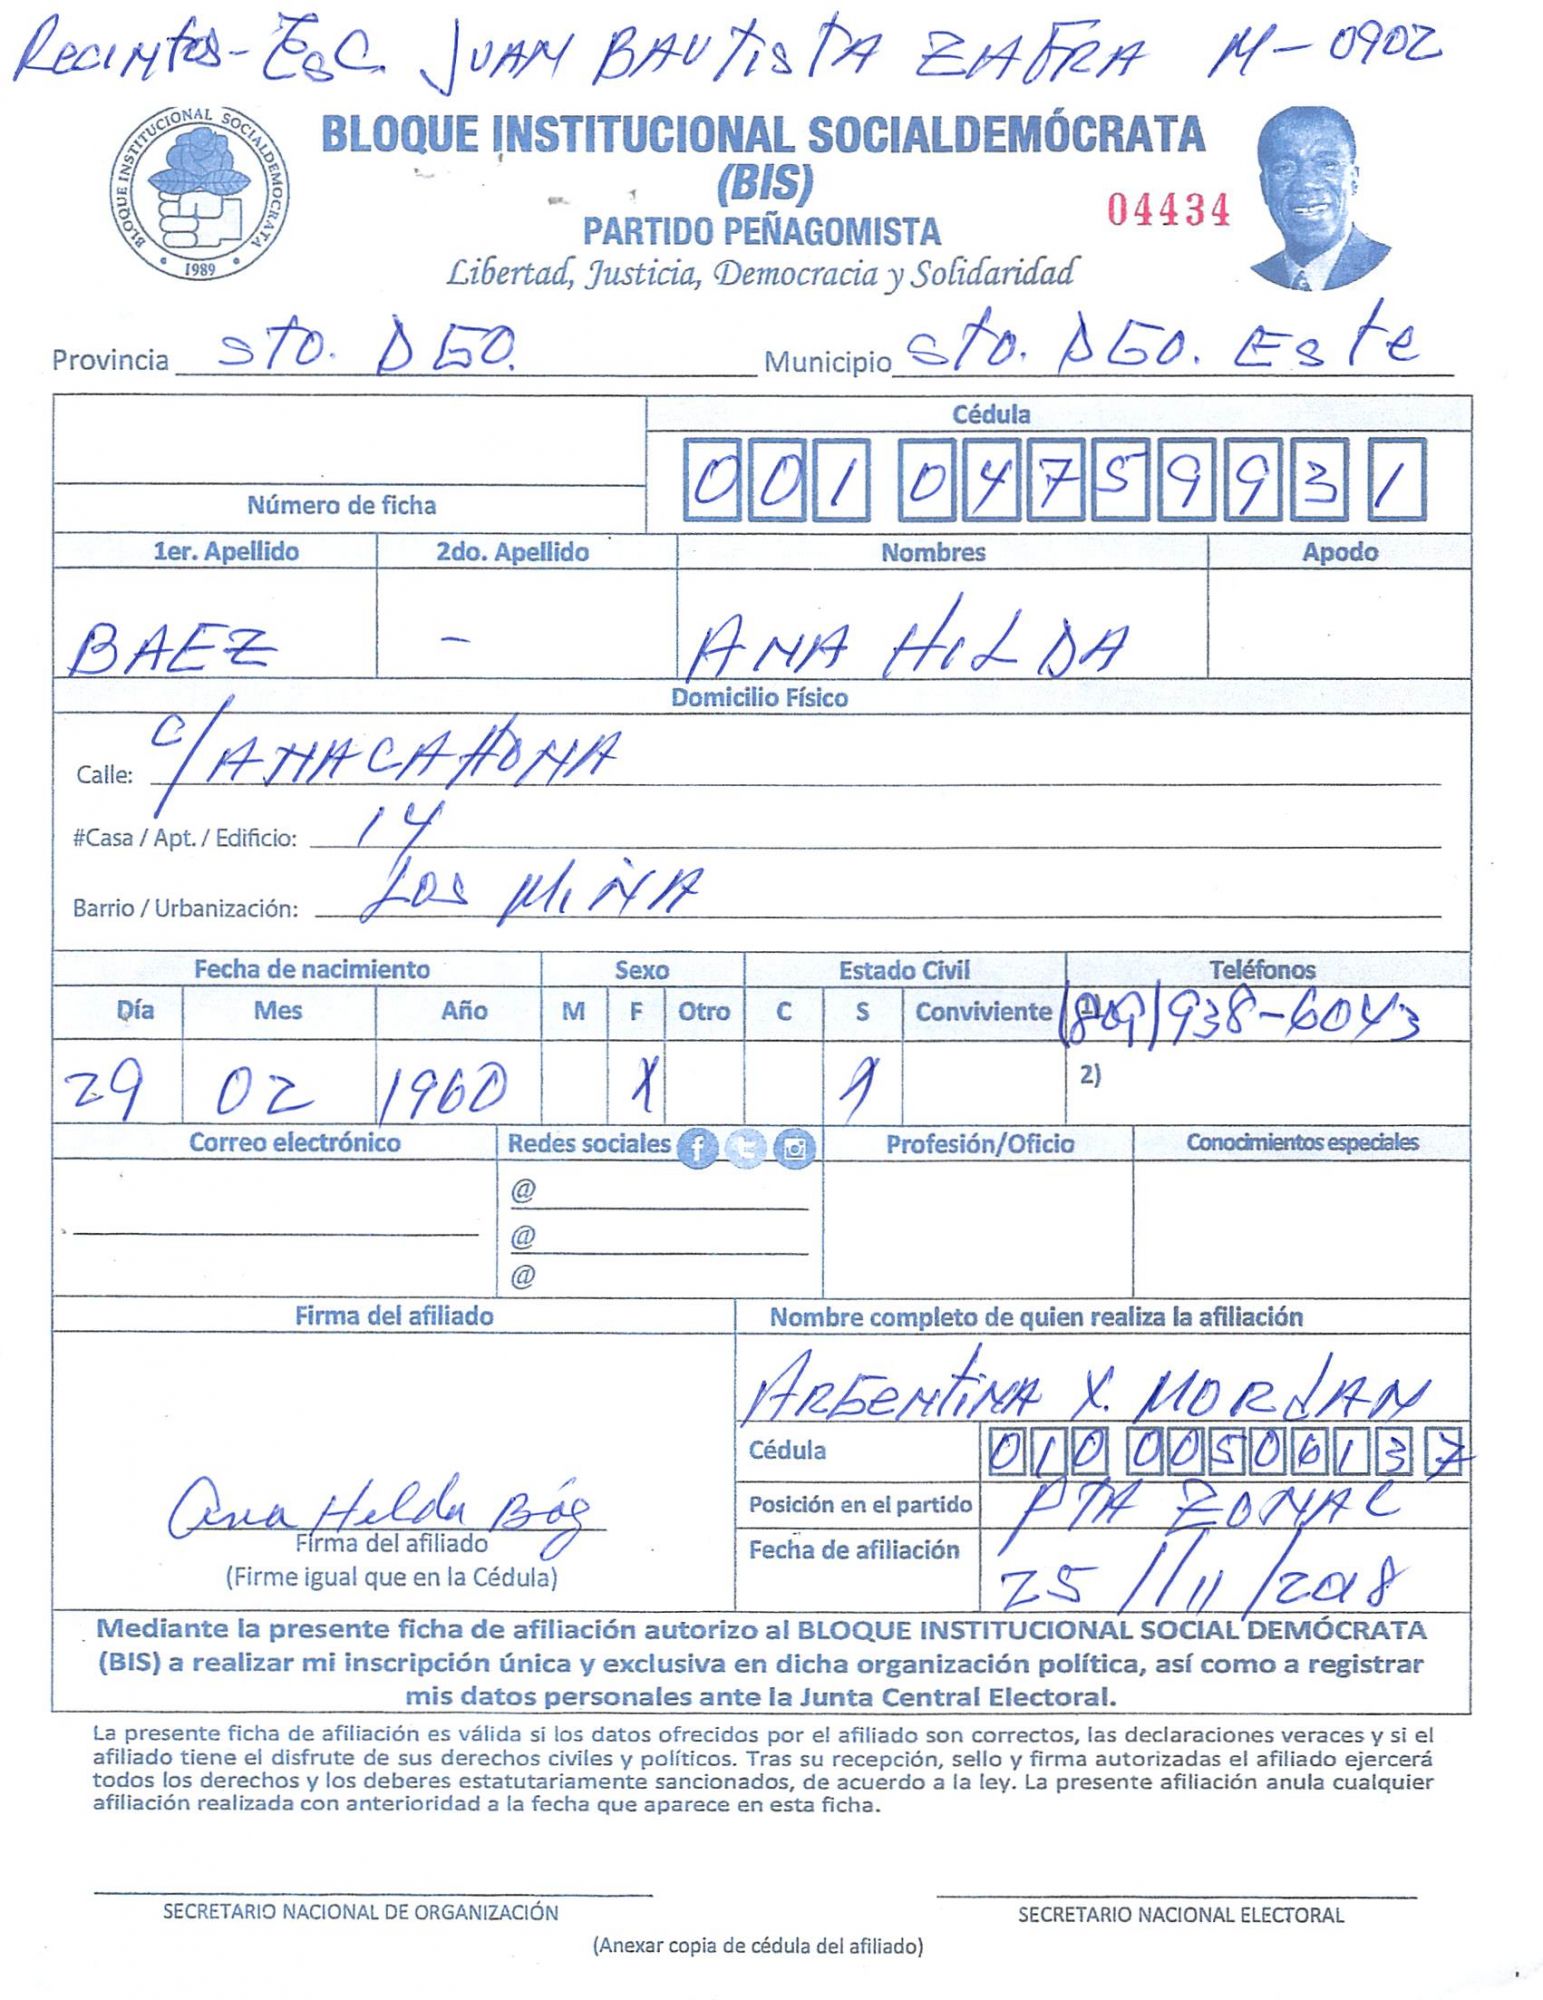 Recintos - Esc. JUAN BAUTISTA ZAFRA M-0902
BLOQUE INSTITUCIONAL SOCIALDEMOCRATA
1989
BLOQUE INSTITUCIONAL SOCIALDEMÓCRATA
(BIS)
PARTIDO PEÑAGOMISTA
04434
Libertad, Justicia, Democracia y Solidaridad
Provincia STO. DGO. Municipio STO. DGO. ESte
Cédula
001 0475993 1
Número de ficha
1er. Apellido 2do. Apellido Nombres Apodo
BAEZ - ANA HILDA
Domicilio Físico
Calle: C/ANACAHONA
#Casa / Apt. / Edificio: 14
Barrio / Urbanización: Los MiNA
Fecha de nacimiento Sexo Estado Civil Teléfonos
Día Mes Año M F Otro C S Conviviente 1) (809) 938-6043
29 02 1960 X X 2)
Correo electrónico Redes sociales Profesión/Oficio Conocimientos especiales
@
@
@
Firma del afiliado Nombre completo de quien realiza la afiliación
ARGENTINA X. MORDAN
Cédula 010 0050613 7
Ana Hilda Báez
Posición en el partido PTA ZONAL
Firma del afiliado
Fecha de afiliación 25/11/2018
(Firme igual que en la Cédula)
Mediante la presente ficha de afiliación autorizo al BLOQUE INSTITUCIONAL SOCIAL DEMÓCRATA
(BIS) a realizar mi inscripción única y exclusiva en dicha organización política, así como a registrar
mis datos personales ante la Junta Central Electoral.
La presente ficha de afiliación es válida si los datos ofrecidos por el afiliado son correctos, las declaraciones veraces y si el
afiliado tiene el disfrute de sus derechos civiles y políticos. Tras su recepción, sello y firma autorizadas el afiliado ejercerá
todos los derechos y los deberes estatutariamente sancionados, de acuerdo a la ley. La presente afiliación anula cualquier
afiliación realizada con anterioridad a la fecha que aparece en esta ficha.
SECRETARIO NACIONAL DE ORGANIZACIÓN SECRETARIO NACIONAL ELECTORAL
(Anexar copia de cédula del afiliado)